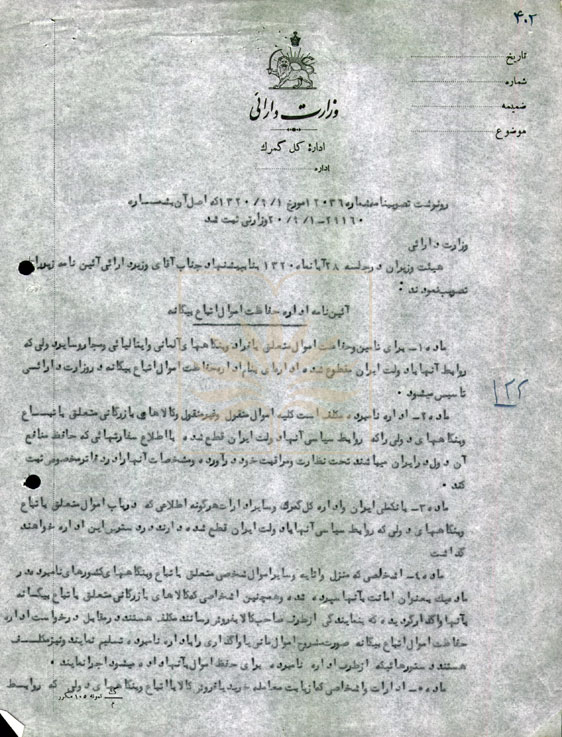 ۴۰۲
تاریخ
شماره
ضمیمه
موضوع
وزارت دارائی
اداره کل گمرك
اداره
رونوشت تصویبنامه شماره ۱۲۰۳۶ مورخ ۱۳۲۰/۹/۱ که اصل آن بشماره
۲۹۱۶۰-۲۰/۹/۱ وزارتی ثبت شد
وزارت دارائی
هیئت وزیران در جلسه ۲۸ آبانماه ۱۳۲۰ بنا به پیشنهاد جناب آقای وزیر دارائی آئین نامه زیر را
تصویب نمودند :
آئین نامه اداره حفاظت اموال اتباع بیگانه
ماده ۱- برای تامین و حفاظت اموال متعلق با فراد و بنگاههای آلمانی و ایتالیائی و سایر دول که
روابط آنها با دولت ایران مقطوع شده اداره ای بنام اداره حفاظت اموال اتباع بیگانه در وزارت دارائی
تاسیس میشود .
ماده ۲- اداره نامبرده مکلف است کلیه اموال منقول و غیر منقول و کالاهای بازرگانی متعلق با تباع
وبنگاههای دولی را که روابط سیاسی آنها با دولت ایران قطع شده با اطلاع سفارتهائی که حافظ منافع
آن دول در ایران میباشند تحت نظارت و مراقبت خود در آورده و مشخصات آنها را در دفاتر مخصوص ثبت
کند .
ماده ۳- بانك ملی ایران و اداره کل گمرك و سایر ادارات هرگونه اطلاعی که در باب اموال متعلق با تباع
وبنگاههای دولی که روابط سیاسی آنها با دولت ایران قطع شده دارند در دسترس این اداره خواهند
گذاشت
ماده ۴- اشخاصی که منزل و اثاثیه و سایر اموال شخصی متعلق با تباع وبنگاههای کشورهای نامبرده در
ماده یك بعنوان امانت بآنها سپرده شده و همچنین اشخاصی که کالاهای بازرگانی متعلق با تباع بیگانه
بآنها واگذار گردیده که بنمایندگی از طرف صاحب کالا بفروش رسانند مکلف هستند در مقابل درخواست اداره
حفاظت اموال اتباع بیگانه صورت مشروح اموال امانی یا واگذاری را باداره نامبرده تسلیم نمایند و نیز مکلف
هستند دستورهائیکه از طرف اداره نامبرده برای حفظ اموال بآنها داده میشود اجرا نمایند .
ماده ۵- ادارات و اشخاصی که از بابت معامله خرید یا فروش کالا با اتباع وبنگاههای دولی که روابط
۱۲۲
نمونه ۱۰۵ مکرر